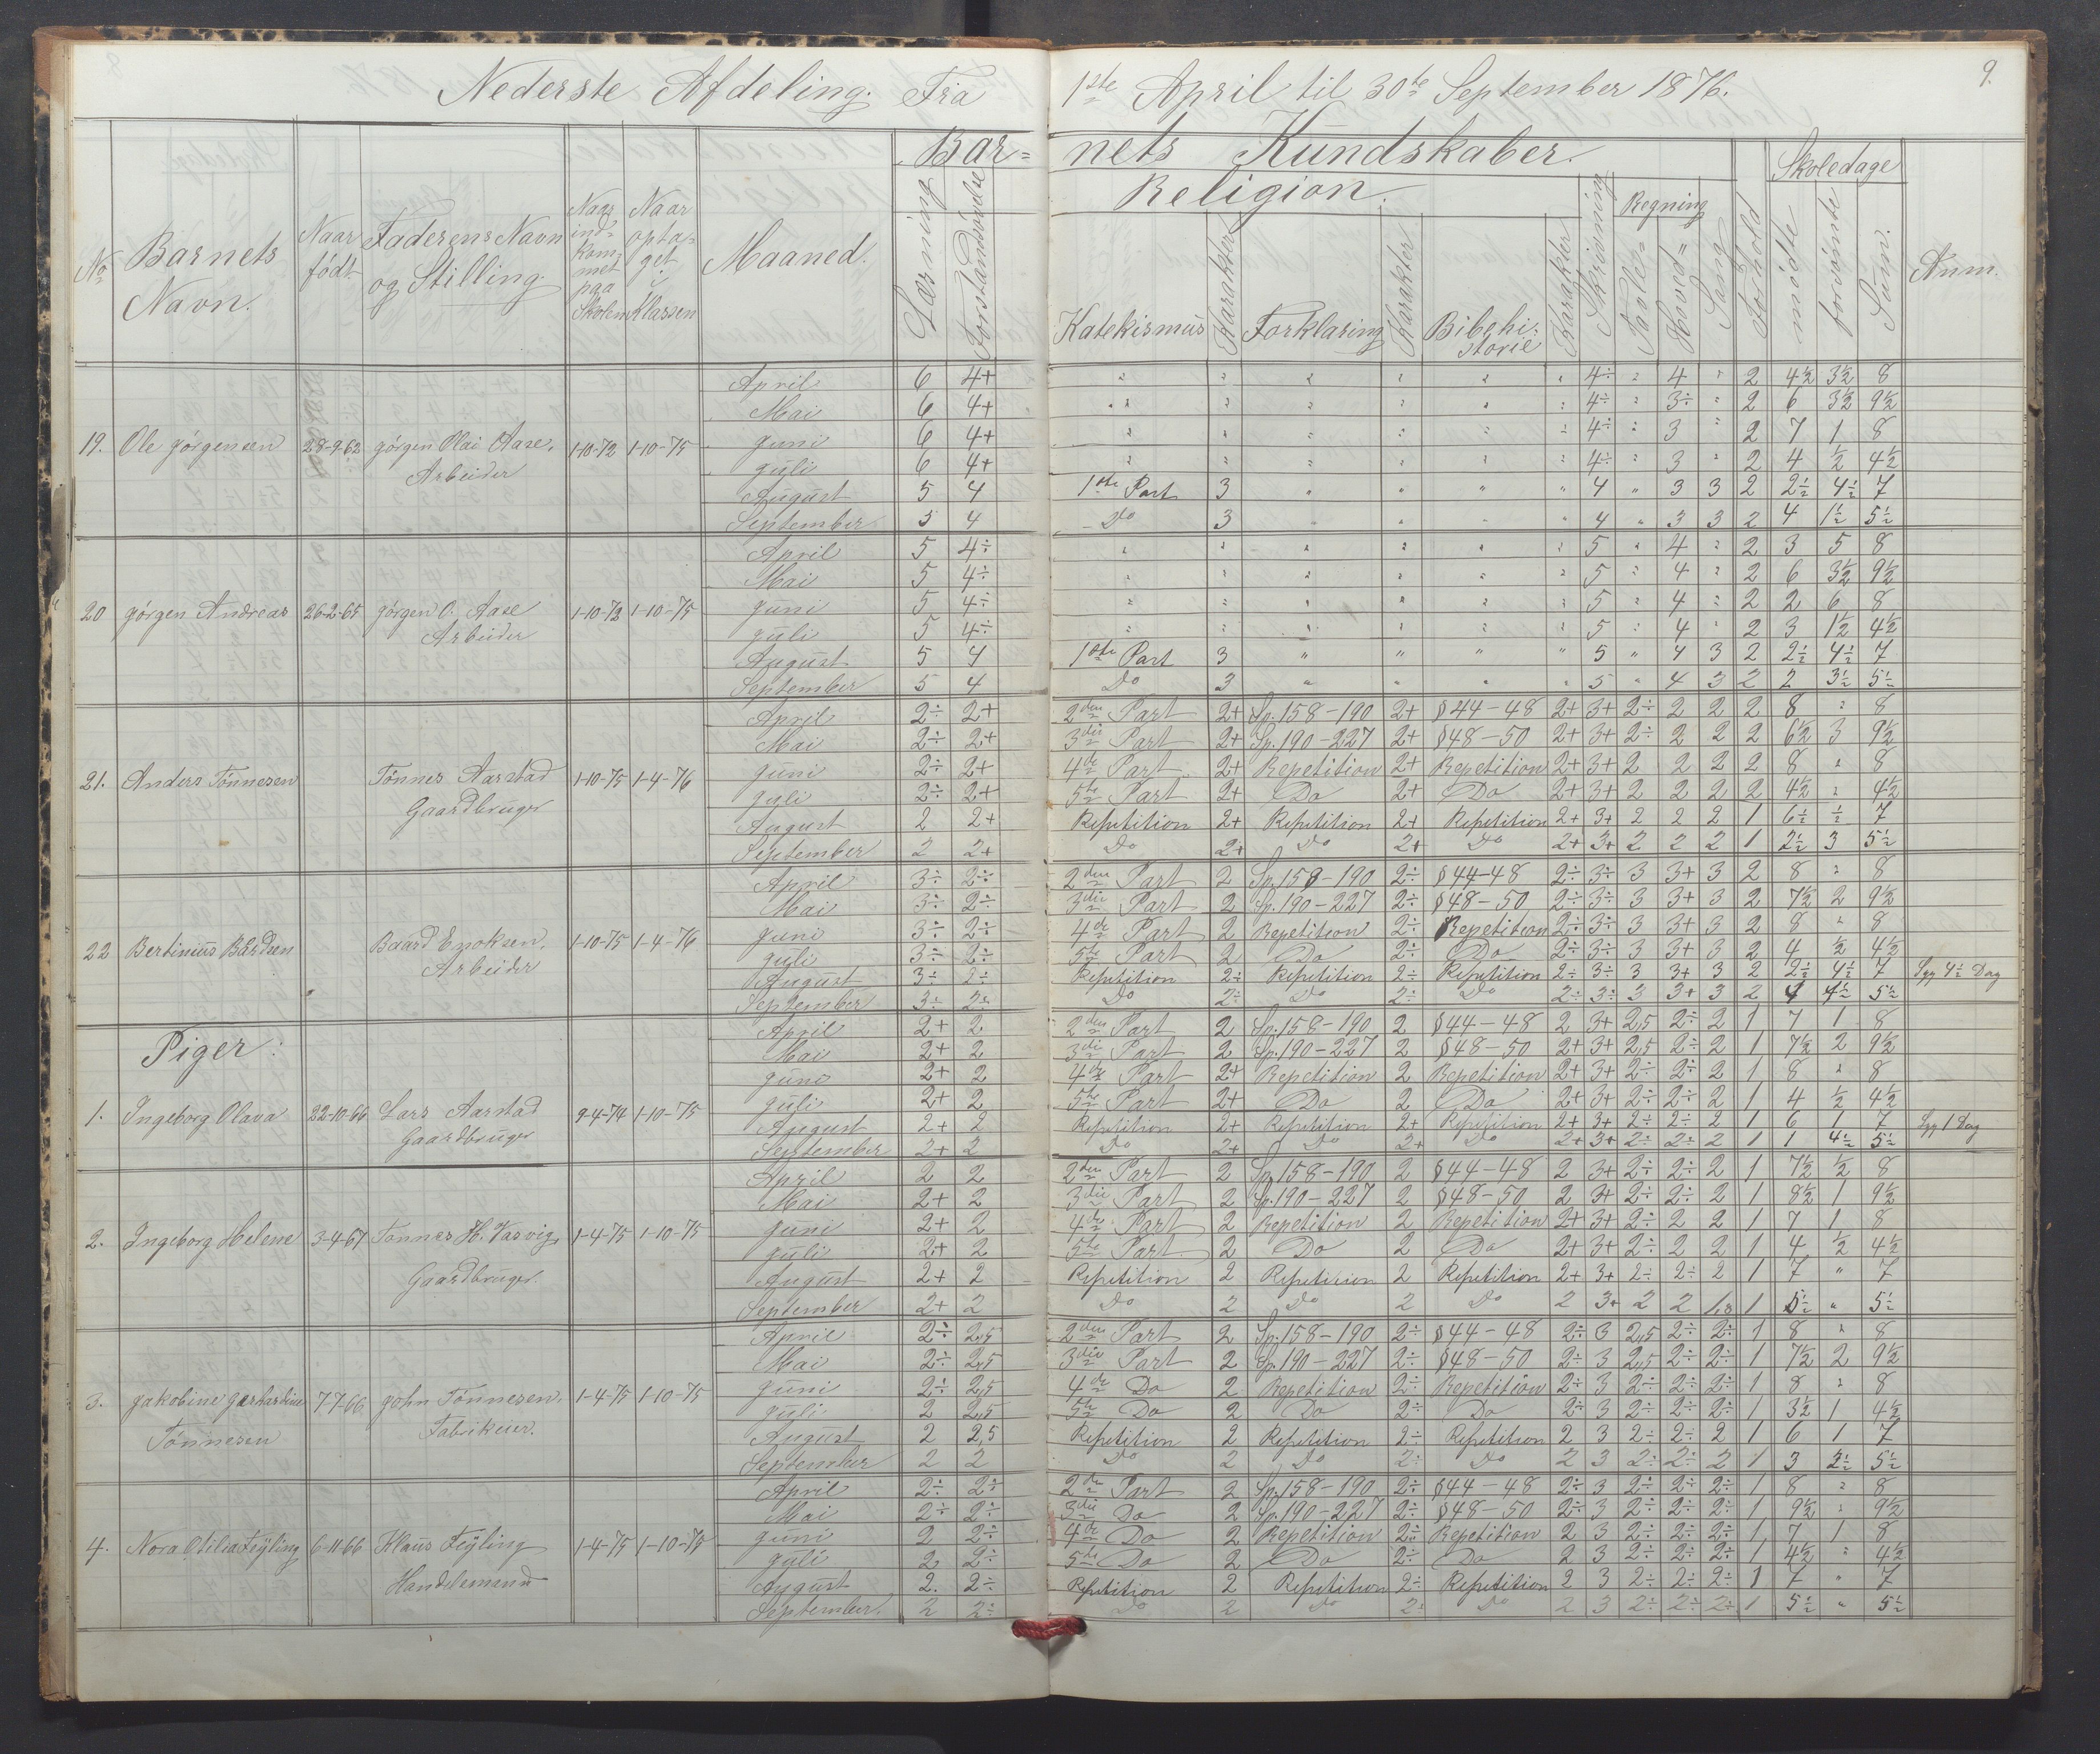 Nederste Afdeling. Fra 1ste April til 30te September 1876. 9.
Bar= nets Kundskaber. Skoledage
Religion. Regning
No Barnets Navn. Naar født Faderens Navn og Stilling. Naar ind= kom= met paa Skolen Naar opta= get i Klassen Maaned. Læsning Forstandsøvelse Katekismus Karakter Forklaring Karakter Bibehi: storie Karakter Skrivning Tavle= Hoved= Sang Forhold mødte forsømte Sum. Anm.
April 6 4+ " " " " " " 4÷ " 4 " 2 4½ 3½ 8
Mai 6 4+ " " " " " " 4÷ " 3÷ " 2 6 3½ 9½
19. Ole Jørgensen 28-9-62 Jørgen Olai Aase, 1-10-72 1-10-75 Juni 6 4+ " " " " " " 4÷ " 3 " 2 7 1 8
Arbeider Juli 6 4+ " " " " " " 4÷ " 3 " 2 4 ½ 4½
August 5 4 1ste Part 3 " " " " 4 " 3 3 2 2½ 4½ 7
September 5 4 Do 3 " " " " 4 " 3 3 2 4 1½ 5½
April 5 4÷ " " " " " " 5 " 4 " 2 3 5 8
Mai 5 4÷ " " " " " " 5 " 4 " 2 6 3½ 9½
20 Jørgen Andreas 26-2-65 Jørgen O. Aase 1-10-72 1-10-75 Juni 5 4÷ " " " " " " 5 " 4 " 2 2 6 8
Arbeider Juli 5 4÷ " " " " " " 5 " 4 " 2 3 1½ 4½
August 5 4 1ste Part 3 " " " " 5 " 4 3 2 2½ 4½ 7
September 5 4 Do 3 " " " " 5 " 4 3 2 2 3½ 5½
April 2÷ 2+ 2den Part 2+ Sp. 158-190 2+ § 44-48 2+ 3+ 2÷ 2 2 2 8 " 8
Mai 2÷ 2+ 3die Part 2+ Sp. 190-227 2+ § 48-50 2+ 3+ 2÷ 2 2 2 6½ 3 9½
21. Anders Tønnesen Tønnes Aarstad 1-10-75 1-4-76 Juni 2÷ 2+ 4de Part 2+ Repetition 2+ Repetition 2+ 3+ 2 2 2 2 8 " 8
Gaardbruger Juli 2÷ 2+ 5te Part 2+ Do 2+ Do 2+ 3+ 2 2 2 2 4½ " 4½
August 2 2+ Repetition 2+ Repetition 2+ Repetition 2+ 3+ 2 2 2 1 6½ ½ 7
September 2 2+ Do 2+ Do 2+ Do 2+ 3+ 2 2 2 1 2½ 3 5½
April 3÷ 2÷ 2den Part 2 Sp. 158-190 2÷ § 44-48 2÷ 3÷ 3 3+ 3 2 8 " 8
Mai 3÷ 2÷ 3die Part 2 Sp. 190-227 2÷ § 48-50 2÷ 3÷ 3 3+ 3 2 7½ 2 9½
22 Bertinius Bårdsen Baard Enoksen, 1-10-75 1-4-76 Juni 3÷ 2÷ 4de Part 2 Repetition 2÷ Repetition 2÷ 3÷ 3 3+ 3 2 8 " 8
Arbeider Juli 3÷ 2÷ 5te Part 2 Do 2÷ Do 2÷ 3÷ 3 3+ 3 2 4 ½ 4½
August 3÷ 2÷ Repetition 2÷ Repetition 2÷ Repetition 2÷ 3÷ 3 3+ 3 2 2½ 4½ 7 Syg 4½ Dag
September 3÷ 2÷ Do 2÷ Do 2÷ Do 2÷ 3÷ 3 3+ 3 2 4½ 5½
Piger:
April 2+ 2 2den Part 2 Sp. 158-190 2 § 44-48 2 3+ 2,5 2÷ 2 1 7 1 8
Mai 2+ 2 3die Part 2 Sp. 190-227 2 § 48-50 2+ 3+ 2,5 2÷ 2 1 7½ 2 9½
Juni 2+ 2 4de Part 2+ Repetition 2 Repetition 2+ 3+ 2÷ 2÷ 2 1 8 " 8
1. Ingeborg Olava 22-10-66 Lars Aarstad 9-4-74 1-10-75 Juli 2+ 2 5te Part 2+ Do 2 Do 2+ 3+ 2÷ 2÷ 2 1 4 ½ 4½
Gaardbruger August 2+ 2 Repetition 2+ Repetition 2+ Repetition 2+ 3+ 2÷ 2÷ 2 1 6 1 7 Syg 1 Dag
September 2+ 2 Do 2+ Do 2+ Do 2+ 3+ 2÷ 2÷ 2 1 1 4½ 5½
April 2 2 2den Part 2 Sp. 158-190 2 § 44-48 2 3+ 2÷ 2÷ 2 1 7½ ½ 8
Mai 2+ 2 3die Part 2 Sp. 190-227 2 § 48-50 2 3+ 2÷ 2÷ 2 1 8½ 1 9½
2. Ingeborg Helene 3-4-67 Tønnes H. Vasvig 1-4-75 1-10-75 Juni 2+ 2 4de Part 2 Repetition 2 Repetition 2+ 3+ 2÷ 2 2 1 7 1 8
Gaardbruger. Juli 2+ 2 5te Part 2 Do 2 Do 2+ 3+ 2÷ 2 2 1 4 ½ 4½
August 2+ 2 Repetition 2 Repetition 2 Repetition 2+ 3+ 2÷ 2÷ 2 1 7 " 7
September 2+ 2 Do 2 Do 2 Do 2 3+ 2 2 1,8 1 5½ " 5½
April 2÷ 2,5 2den Part 2 Sp. 158-190 2÷ § 44-48 2÷ 3 2,5 2÷ 2÷ 1 8 " 8
Mai 2÷ 2,5 3die Part 2 Sp. 190-227 2÷ § 48-50 2÷ 3 2,5 2÷ 2÷ 1 7½ 2 9½
3. Jakobine 7-7-66 John Tønnesen, 1-4-75 1-10-75 Juni 2÷ 2,5 4de Do 2 Repetition 2÷ Repetition 2÷ 3 2÷ 2÷ 2÷ 1 8 " 8
Tønnesen Fabrikeier. Juli 2 2,5 5te Do 2 Do 2÷ Do 2÷ 3 2÷ 2÷ 2÷ 1 3½ 1 4½
August 2 2,5 Repetition 2 Repetition 2÷ Repetition 2 3 2÷ 2÷ 2 1 6 1 7
September 2 2 Do 2 Do 2÷ Do 2 3 2÷ 2÷ 2 1 3 2½ 5½
April 2÷ 2÷ 2den Part 2 Sp. 158-190 2÷ § 44-48 2÷ 3 2÷ 2÷ 2÷ 1 8 " 8
Mai 2÷ 2÷ 3die Do 2 Sp. 190-227 2÷ § 48-50 2÷ 3 2÷ 2÷ 2÷ 1 9½ " 9½
4. Nora Otilia Feyling 6-11-66 Klaus Feyling 1-4-75 1-10-75 Juni 2 2÷ 4de Do 2 Repetition 2÷ Repetition 2 3 2÷ 2÷ 2÷ 1 7 1 8
Handelsmand Juli 2 2÷ 5te Do 2 Do 2÷ Do 2 3 2÷ 2÷ 2÷ 1 4½ " 4½
August 2. 2÷ Repetition 2 Repetition 2÷ Repetition 2 3 2÷ 2÷ 2÷ 1 7 " 7
September. 2 2÷ Do 2 Do 2÷ Do 2 3 2÷ 2÷ 2÷ 1 5½ " 5½